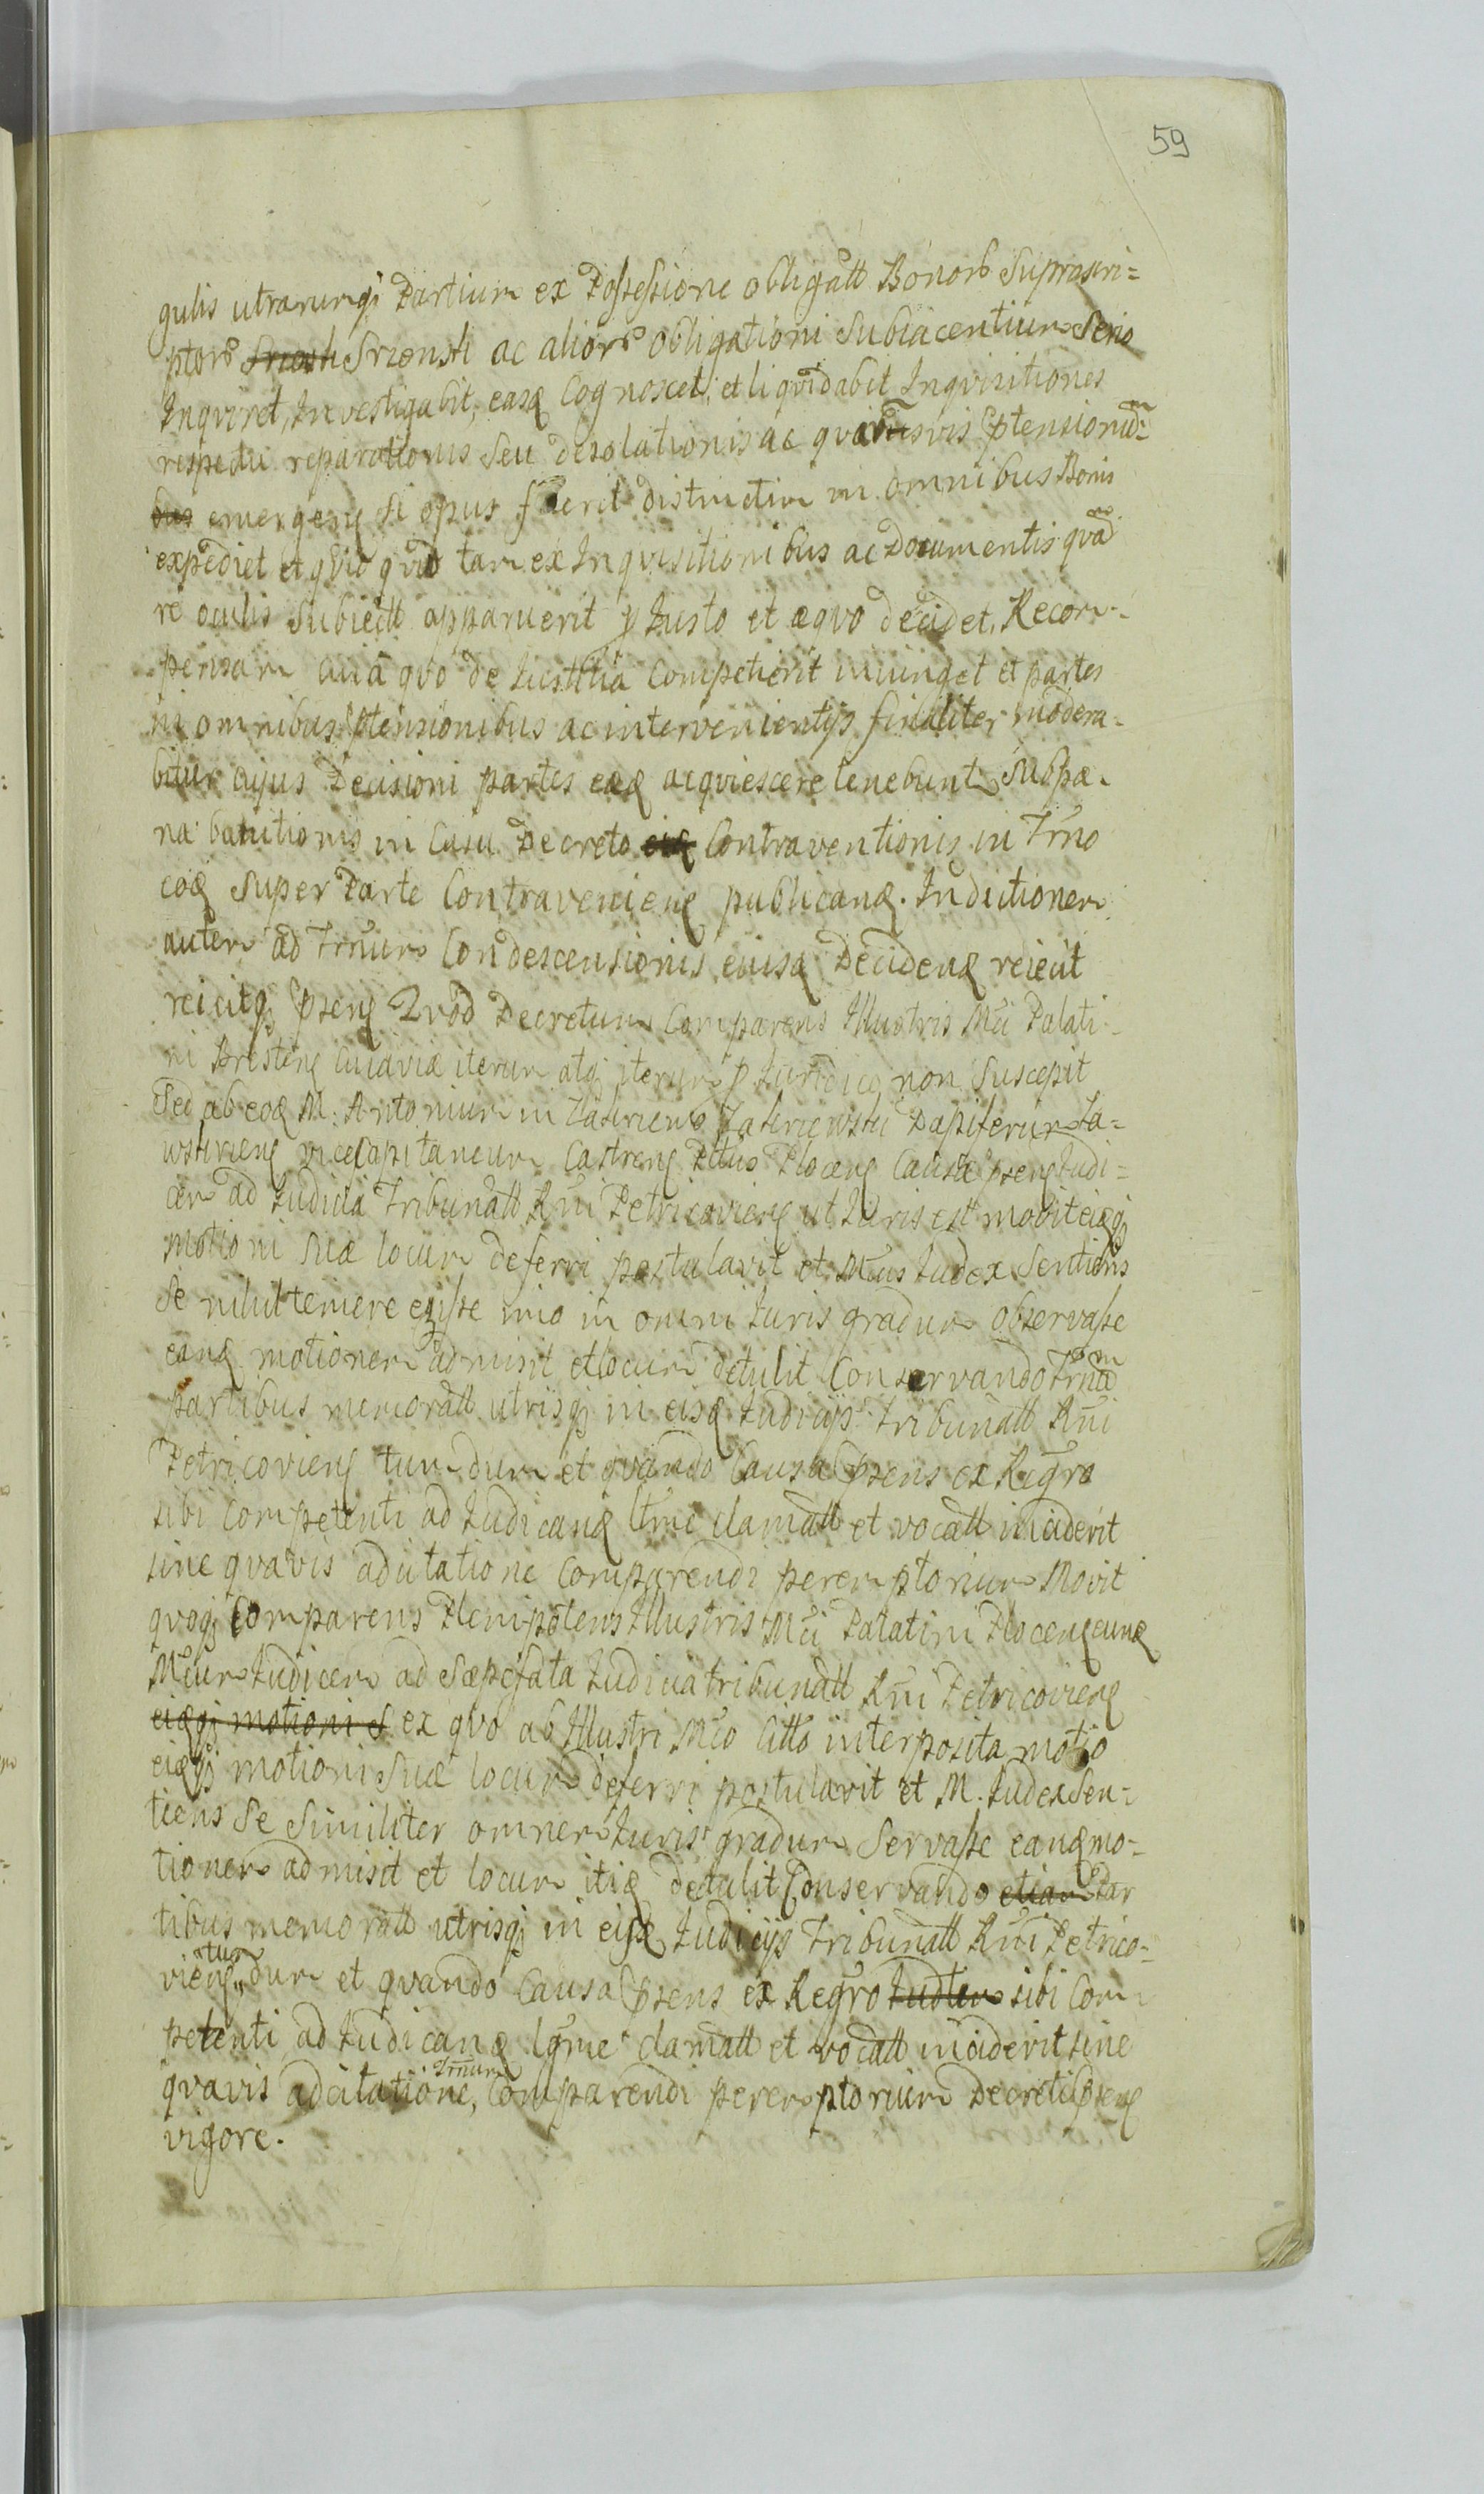 59
gulis utrarumqꝫ Partium ex Possessione obligatt Bonorꝫ Suprascri=
ptorꝫ Srzensti ac aliorꝫ Obligationi Subiacentium Serio
Inqviret, Investigabit, easq Cognoscet, et liqvidabit Inqvisitiones
respectu reparationis Seu desolationis ac qva svis Ptensionu
emergenꝭ Si opus fuerit distinctim in omnibus Bonis
expediet et qvid qvid tam ex Inqvisitionibus ac Documentis qvam
re oculis Subiectt apparuerit ꝑ Iusto et æqvo decidet, Recom-
pensam Cui a qvo de Iustitia Competierit iniunget et partes
in omnibus Ptensionibus ac intervenientijs finaliter modera-
bitur cujus Decisioni partes eæꝗ acqviescere tenebunt Sub pæ-
na banitionis in Casu Decreto Contraventionis in Trno
eoꝗ Super Parte Contravenienꝭ publicanꝗ. Inductionem
autem ad Trnum Condescensionis eiusꝗ Decidenꝗ reiecit
reicitqꝫ Psenꝭ Qvod Decretum Comparens Illustris Mci Palati-
ni Brestenꝭ Cuiaviæ iterum atqꝫ iterum ꝑ Iuridico non Suscepit
Sed ab eoꝗ M. Antonium in Zakrzewo Zakrzewski Dapiferum
vicecapitaneum Castrenꝭ Plocenꝭ Causæ Psenꝭ Iudi=
cem ad Iudicia Tribunatt Rni Petricovienꝭ ut Iuris est movit eiqꝫ
motioni Suæ locum deferri postulavit et Mcus Iudex Sentiens
Se nihil temere egisse imo in omni Iuris gradum observasse
eanꝗ motionem admisit et locum detulit Conservando Trnum
partibus memoratt utrisqꝫ in eisꝗ Iudicijs Tribunatt Rni
Petricovienꝭ tum dum et qvando Causa Psens ex Regro
sibi Competenti ad Iudicanꝗ ltme clamatt et vocatt inciderit
sine qvavis adcitatione Comparendi peremptorium Movit
qvoqꝫ Comparens Plenipotens Illustris Mci Palatini Plocenꝭ eunꝗ
Mcum Iudicem ad Sæpefata Iudicia tribunatt Rni Petricovienꝭ
eiqꝫ motioni s ex qvo ab Illustri Mco Citto interposita motio
eiqꝫ motioni Suæ locum deferri postulavit et M. Iudex Sen=
tiens Se Similiter omnem Iuris gradum Servasse eanꝗ mo-
tionem admisit et locum itiꝗ detulit Conservando etiam Par
tibus memoratt utrisqꝫ in eisꝗ Iudicijs Tribunatt Rni Petrico-
vienꝭ tum dum et qvando Causa Psens ex Regro sibi Com-
petenti ad Iudicanꝗ lgme clamatt et vocatt inciderit sine
qvavis adcitatione, Trnum Comparendi peremptorium Decreti Psenꝭ
vigore.